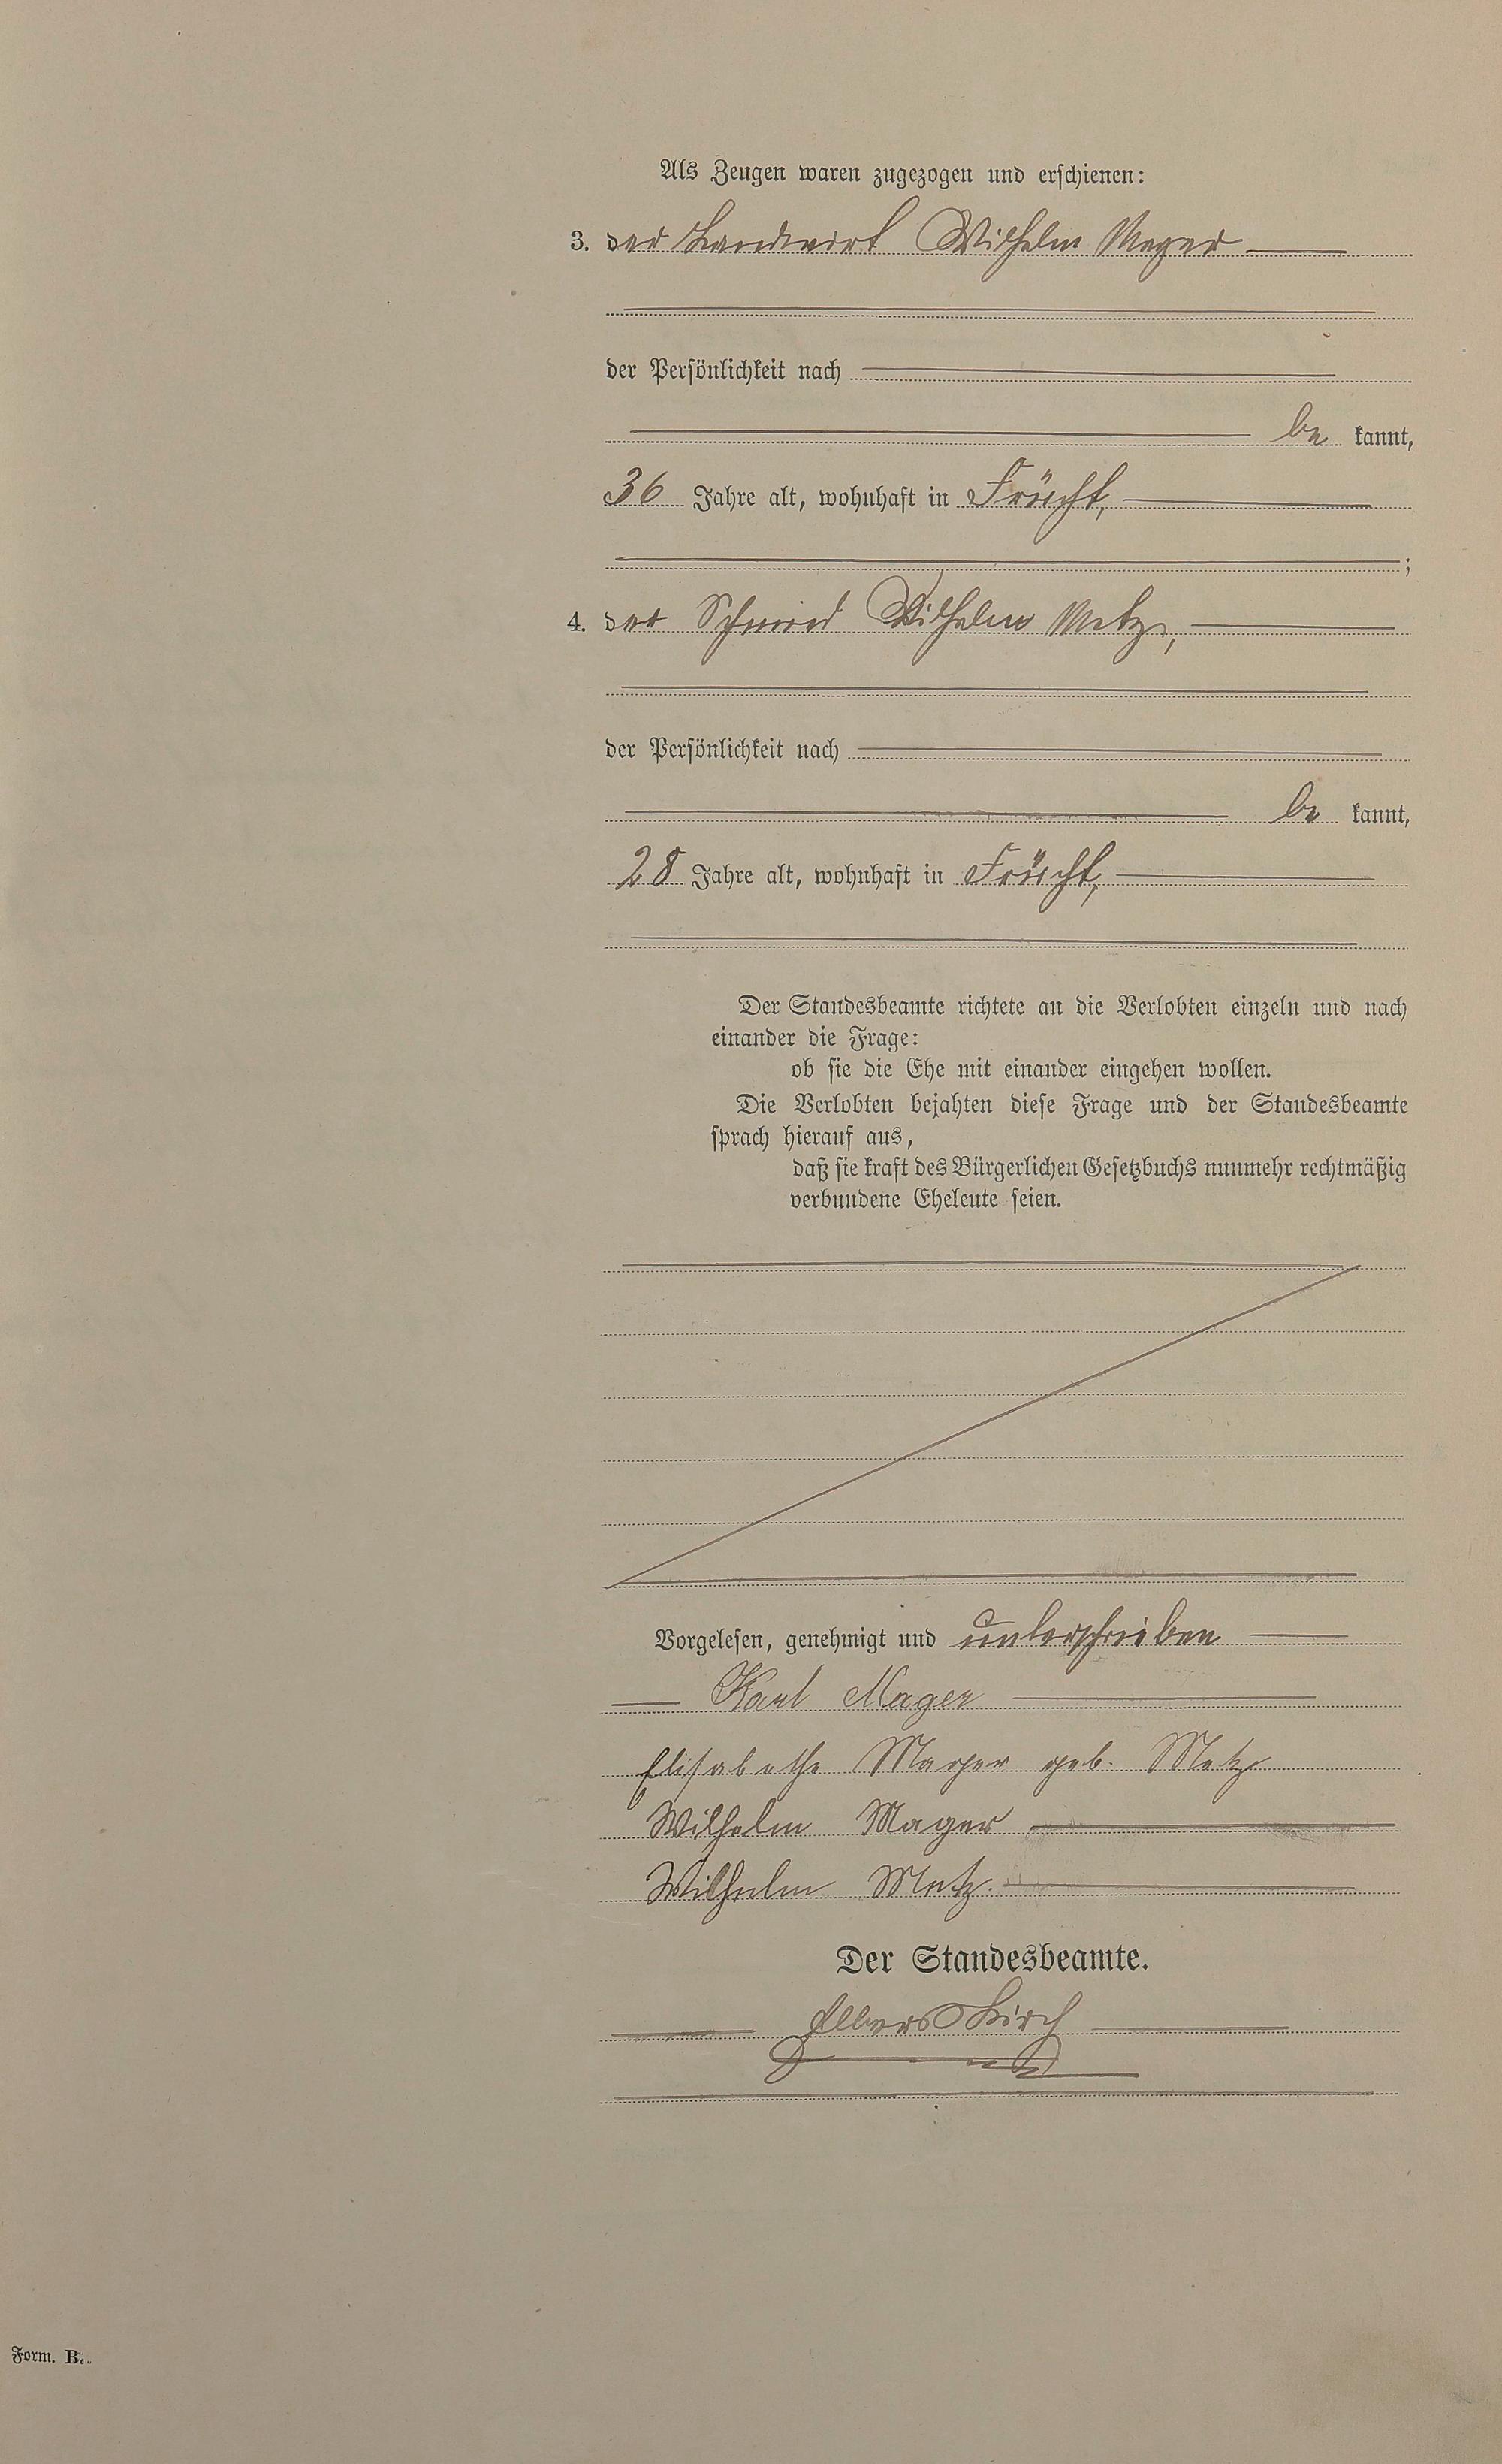 Als Zeugen waren zugezogen und erschienen:
3. der Landwirt Wilhelm Mager
der Persönlichkeit nach
be kannt,
36 Jahre alt, wohnhaft in Frücht,
;
4. der Schmied Wilhelm Metz,
der Persönlichkeit nach
be kannt,
28 Jahre alt, wohnhaft in Frücht,
Der Standesbeamte richtete an die Verlobten einzeln und nach
einander die Frage:
ob sie die Ehe mit einander eingehen wollen.
Die Verlobten bejahten diese Frage und der Standesbeamte
sprach hierauf aus,
daß sie kraft des Bürgerlichen Gesetzbuchs nunmehr rechtmäßig
verbundene Eheleute seien.
Vorgelesen, genehmigt und unterschrieben
Karl Mager
Elisabethe Mager geb. Metz
Wilhelm Mager
Wilhelm Metz.
Der Standesbeamte.
Elberskirch
Form. B.